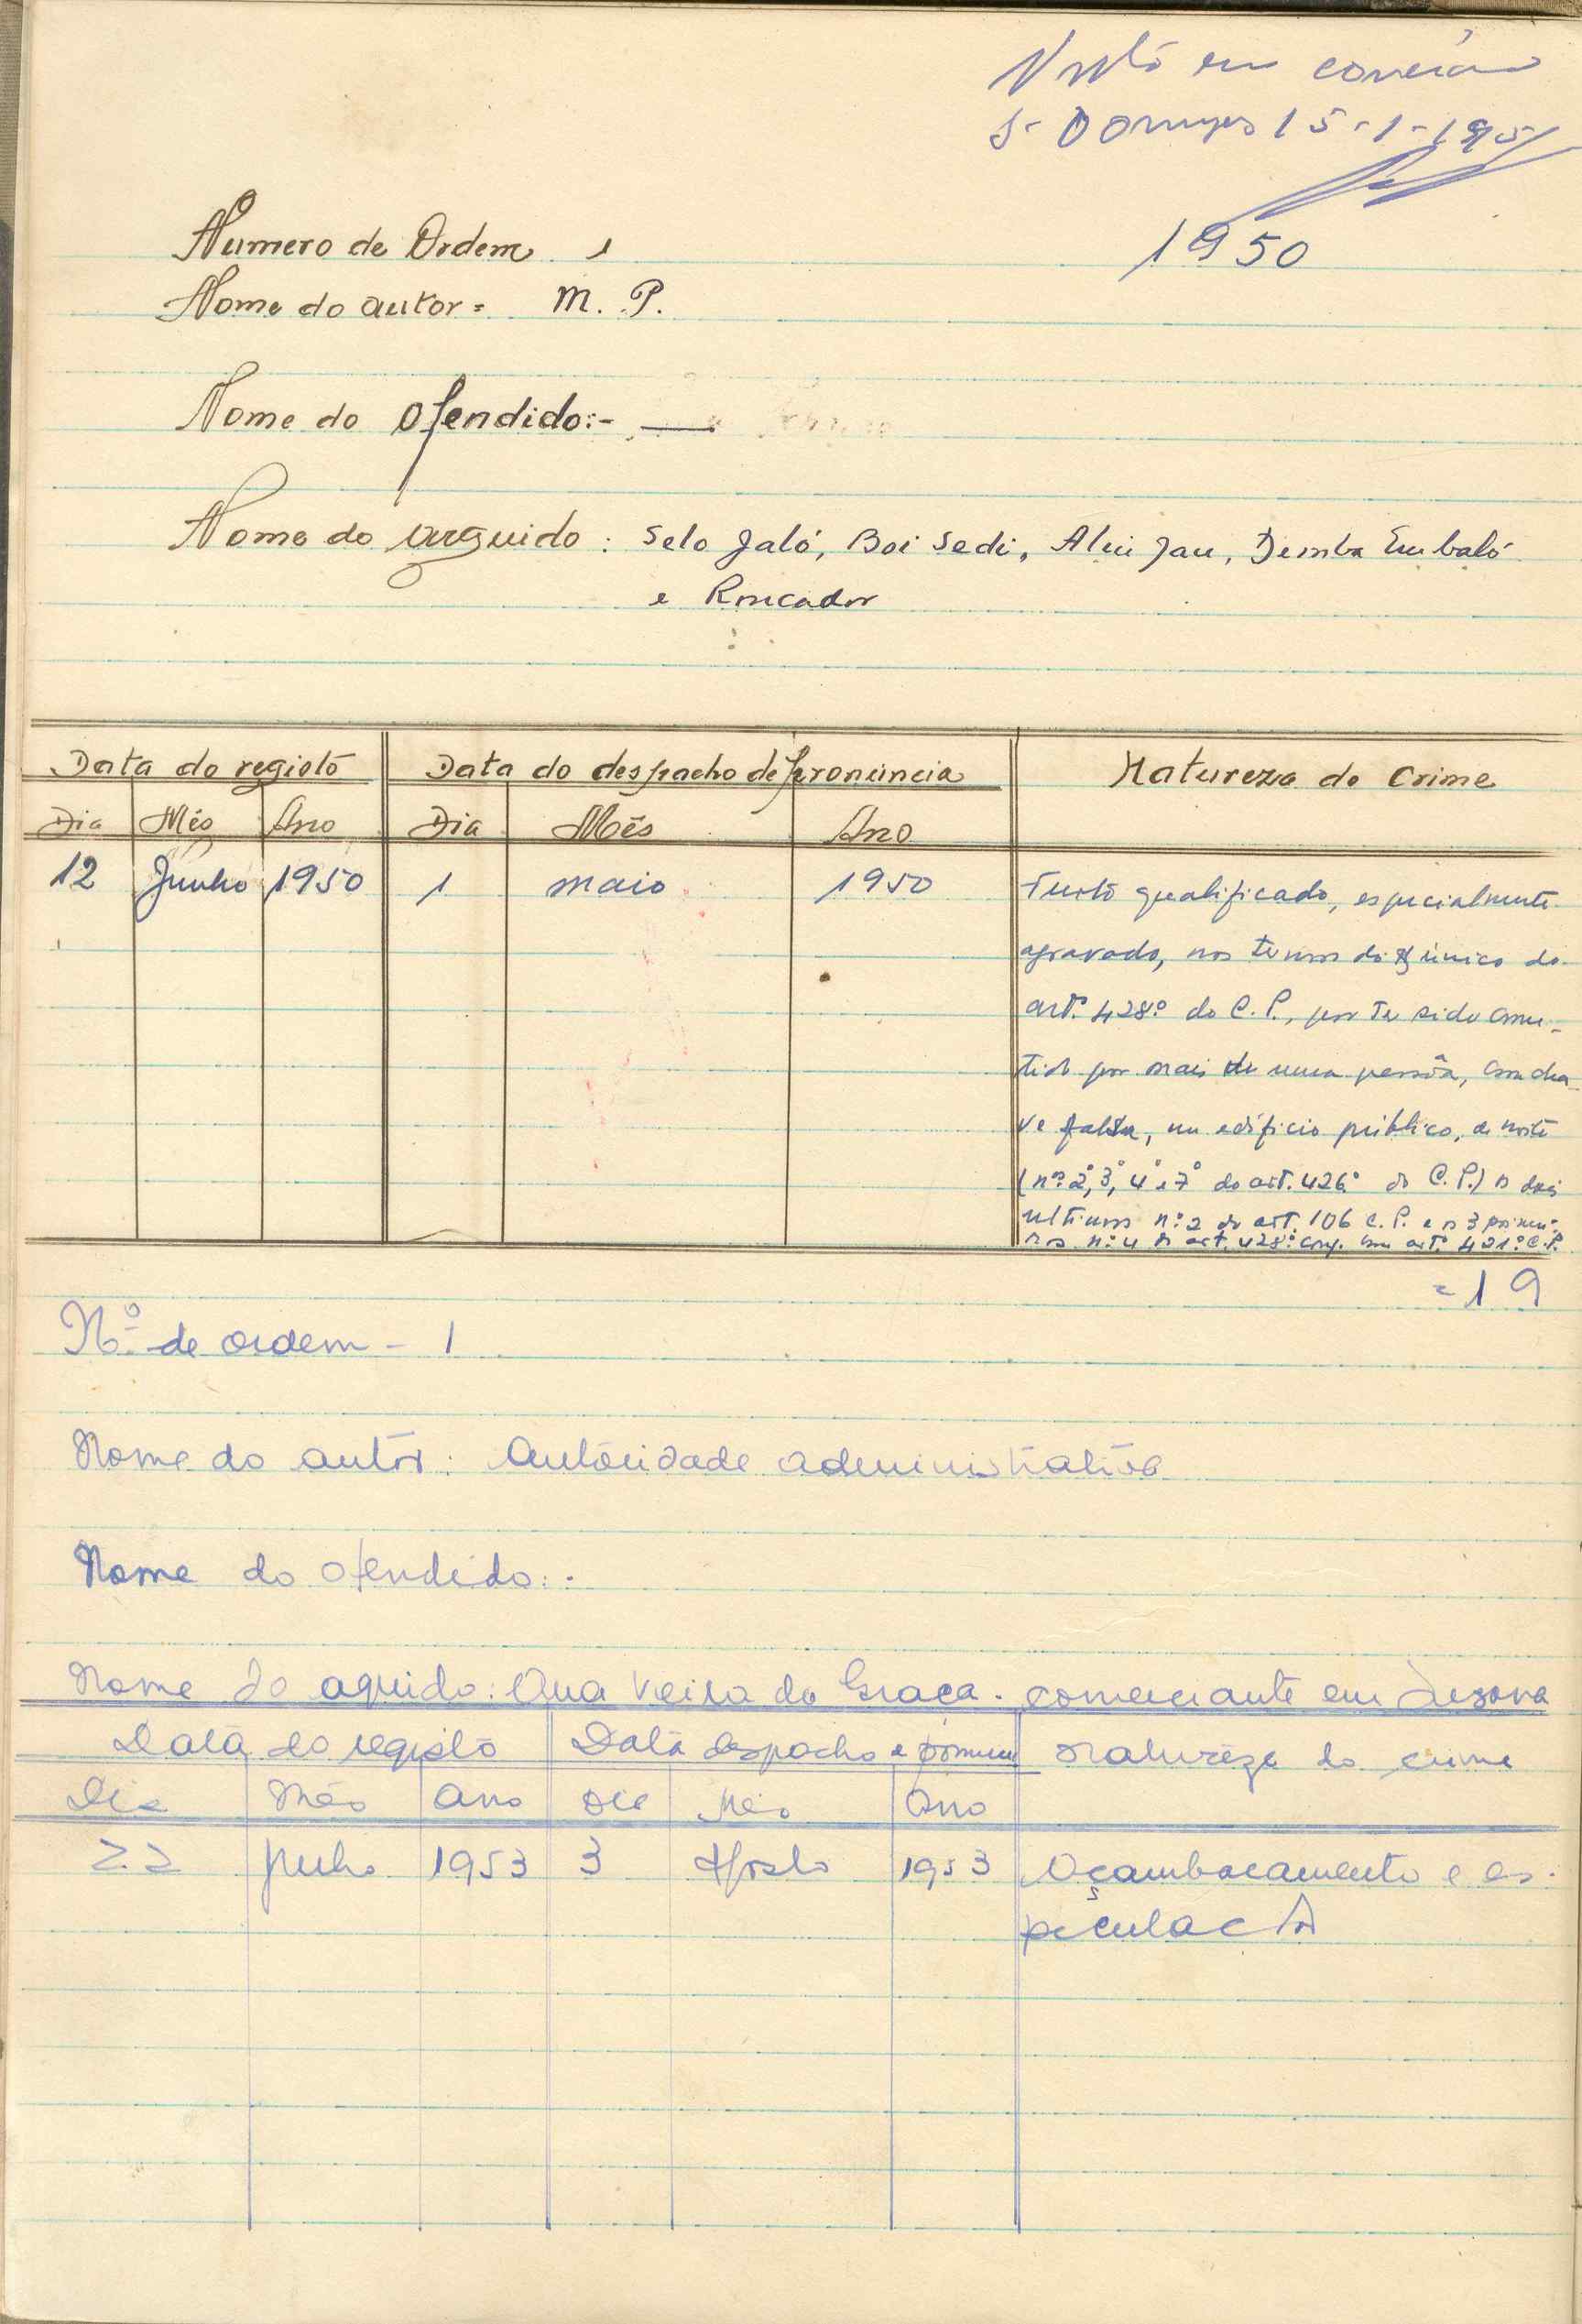 Visto em correição
S. Domingos 15-1-1951
1950
Numero de Ordem 1
Nome do autor = M. P.
Nome do Ofendido:- —
Nome do arguido: Selo Jaló, Boi Sedi, Alui Jau, Demba Embaló
e Roncador
Data do registo Data do despacho de pronúncia Natureza do Crime
Dia Mês Ano Dia Mês Ano
12 Junho 1950 1 maio 1950 Furto qualificado, especialmente
agravado, nos termos do § único do
art.º 428.º do C. P., por ter sido come-
tido por mais de uma pessôa, com cha
ve falsa, em edifício público, de noite
(nº.s 2º, 3º, 4º e 7º do art. 426.º do C. P.) os dois
ultimos n.º 2 do art. 106 C. P. e os 3 primei-
ros n.º 4 do art. 428.º conj. com art.º 421.º C. P.
= 19
N.º de ordem - 1
Nome do autor: Autoridade administrativa
Nome do ofendido: -
Nome do aguido: Ana Veira da Graca - comerciante em
Data do registo Data despacho e natureza do crime
Dia Mês Ano Dia Mês Ano
22 Julho 1953 3 Agosto 1953 Oçambacamento e es-
peculacã